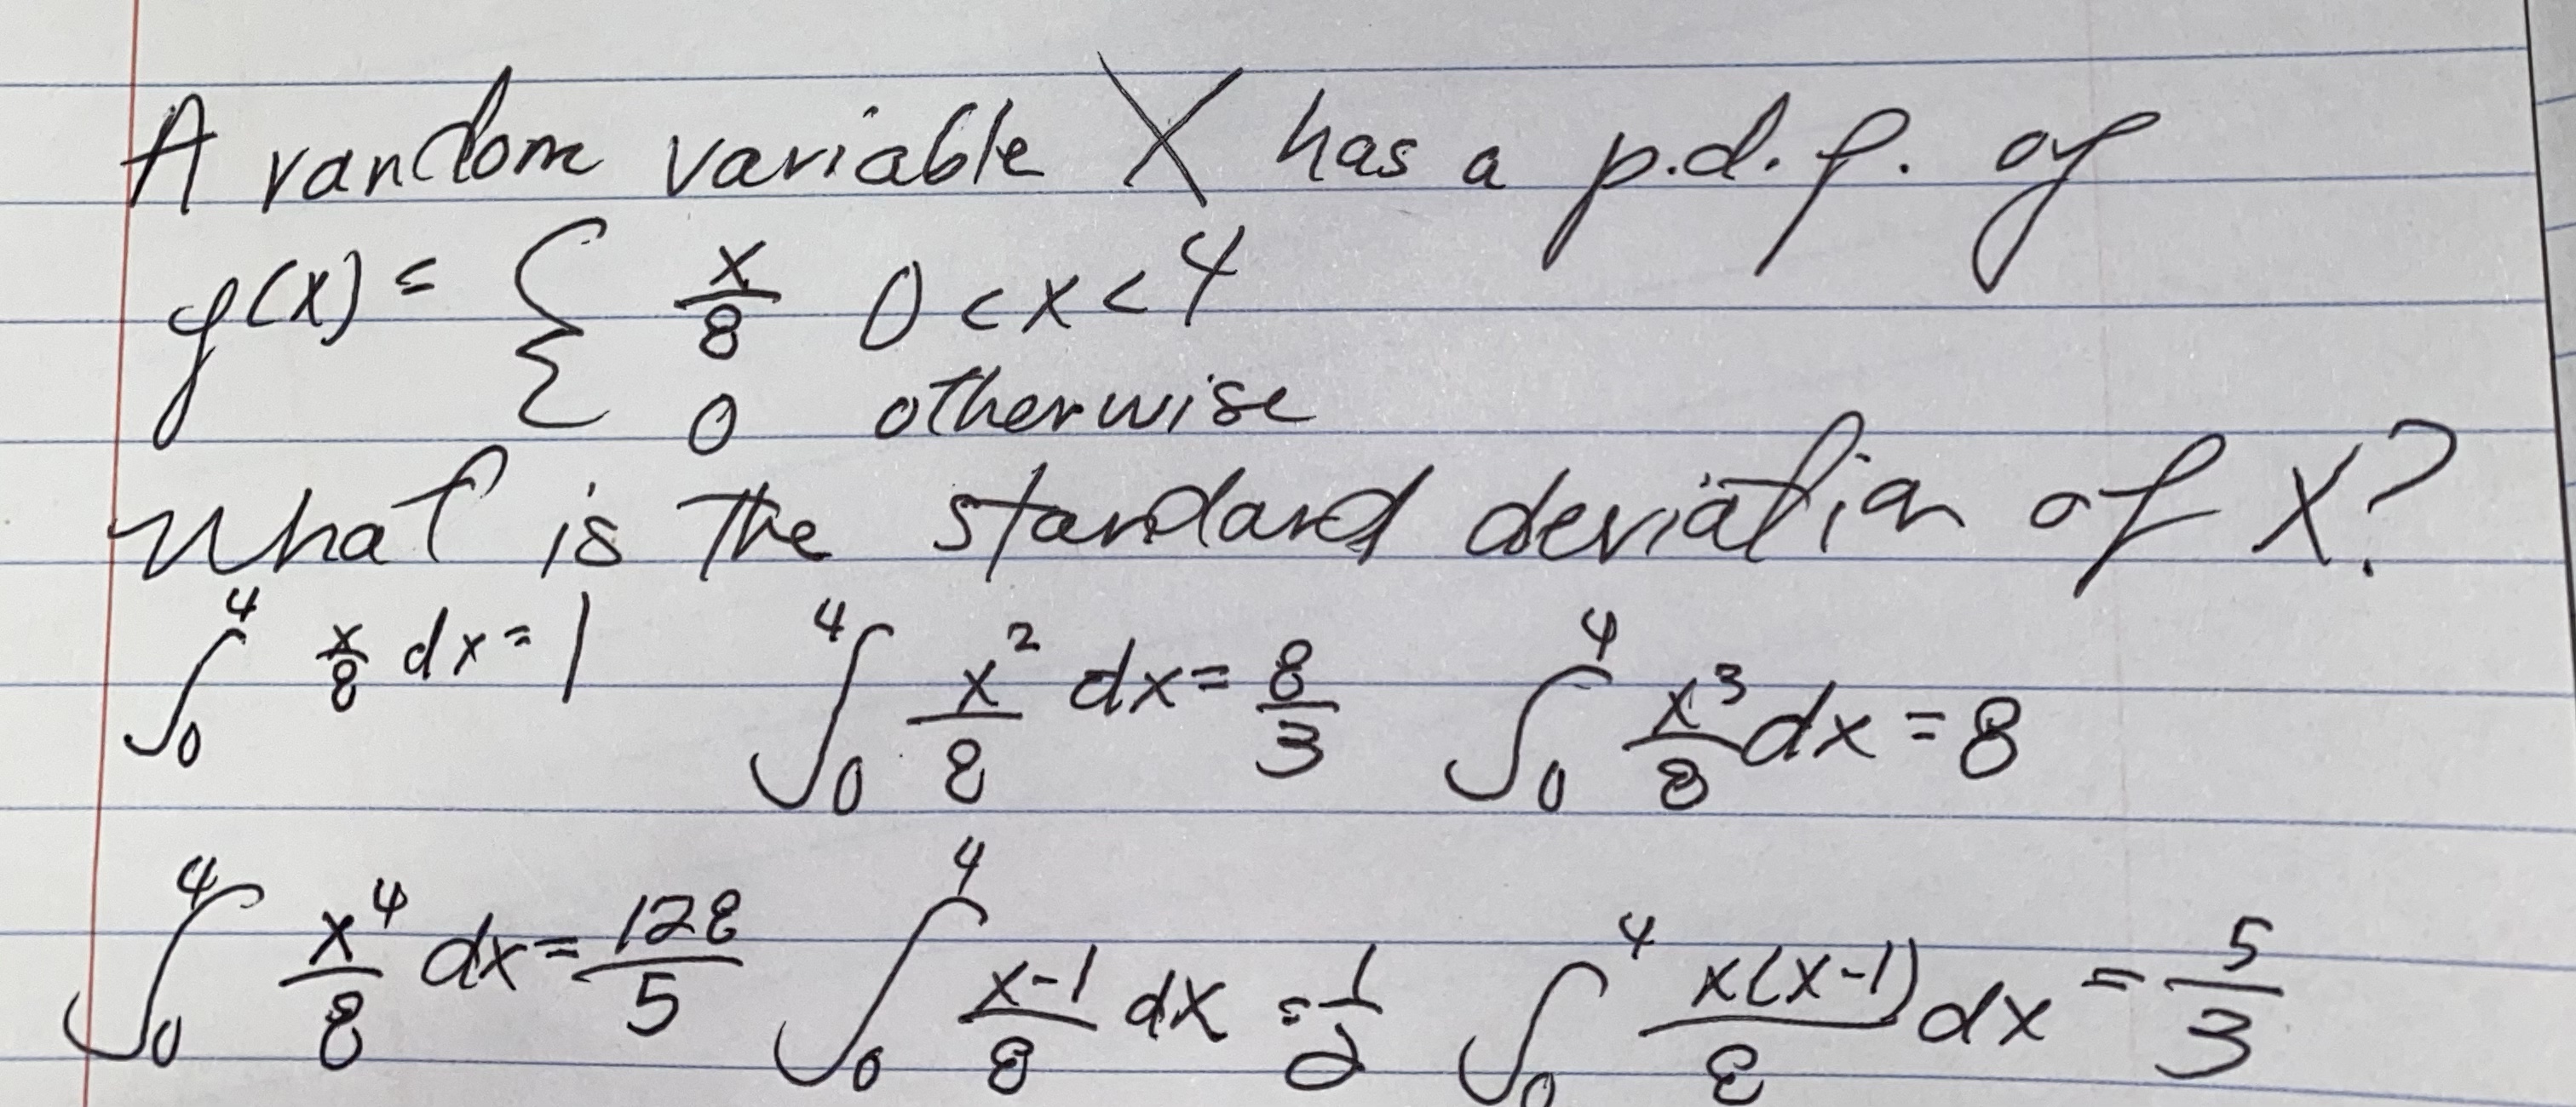 A random variable X has a p.d.f. of
f(x) = { x/8 0 < x < 4
0 otherwise
What is the standard deviation of X?
∫₀⁴ x/8 dx = 1 ∫₀⁴ x²/8 dx = 8/3 ∫₀⁴ x³/8 dx = 8
∫₀⁴ x⁴/8 dx = 128/5 ∫₀⁴ (x-1)/8 dx = 1/2 ∫₀⁴ x(x-1)/8 dx = 5/3